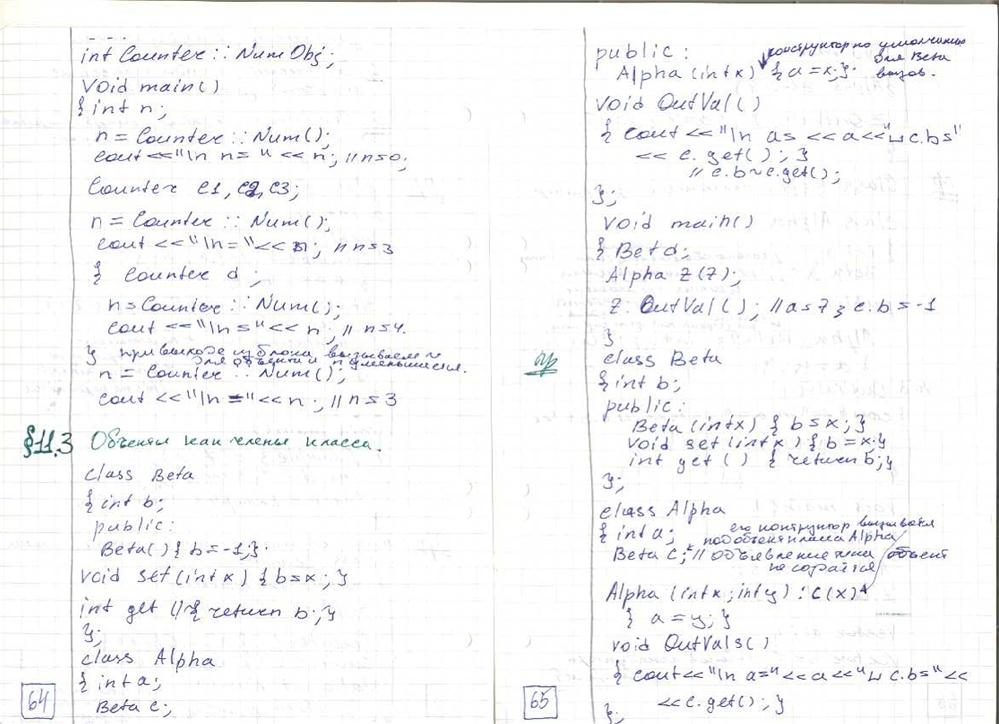 int Counter :: NumObj;
void main()
{ int n;
n = Counter :: Num();
cout << "\n n = " << n; // n = 0;
Counter c1, c2, c3;
n = Counter :: Num();
cout << "\n = " << n; // n = 3
{ Counter d;
n = Counter :: Num();
cout << "\n = " << n; // n = 4.
} при выходе из блока вызывается
для объекта и n уменьшается.
n = Counter :: Num();
cout << "\n =" << n; // n = 3
§11.3 Объекты как члены класса.
class Beta
{ int b;
public:
Beta() { b = -1; }
void set(int x) { b = x; }
int get () { return b; }
};
class Alpha
{ int a;
Beta c;
64
public:
конструктор по умолчанию
для Beta
вызов.
Alpha (int x) { a = x; }
void OutVal()
{ cout << "\n a = << a << "␣ c.b = "
<< c.get(); }
// c.b ~ c.get();
};
void main()
{ Beta d;
Alpha Z(7);
Z. OutVal(); // a = 7 ; c.b = -1
}
пр
class Beta
{ int b;
public:
Beta (int x) { b = x; }
void set (int x) { b = x; }
int get () { return b; }
};
class Alpha
{ int a;
его конструктор вызывается
класса Alpha
Beta c; // объявление типа / объект
не создаётся
Alpha (int x; int y) : c(x)
{ a = y; }
void OutVals()
{ cout << "\n a=" << a << "␣ c.b = " <<
<< c.get(); }
};
65